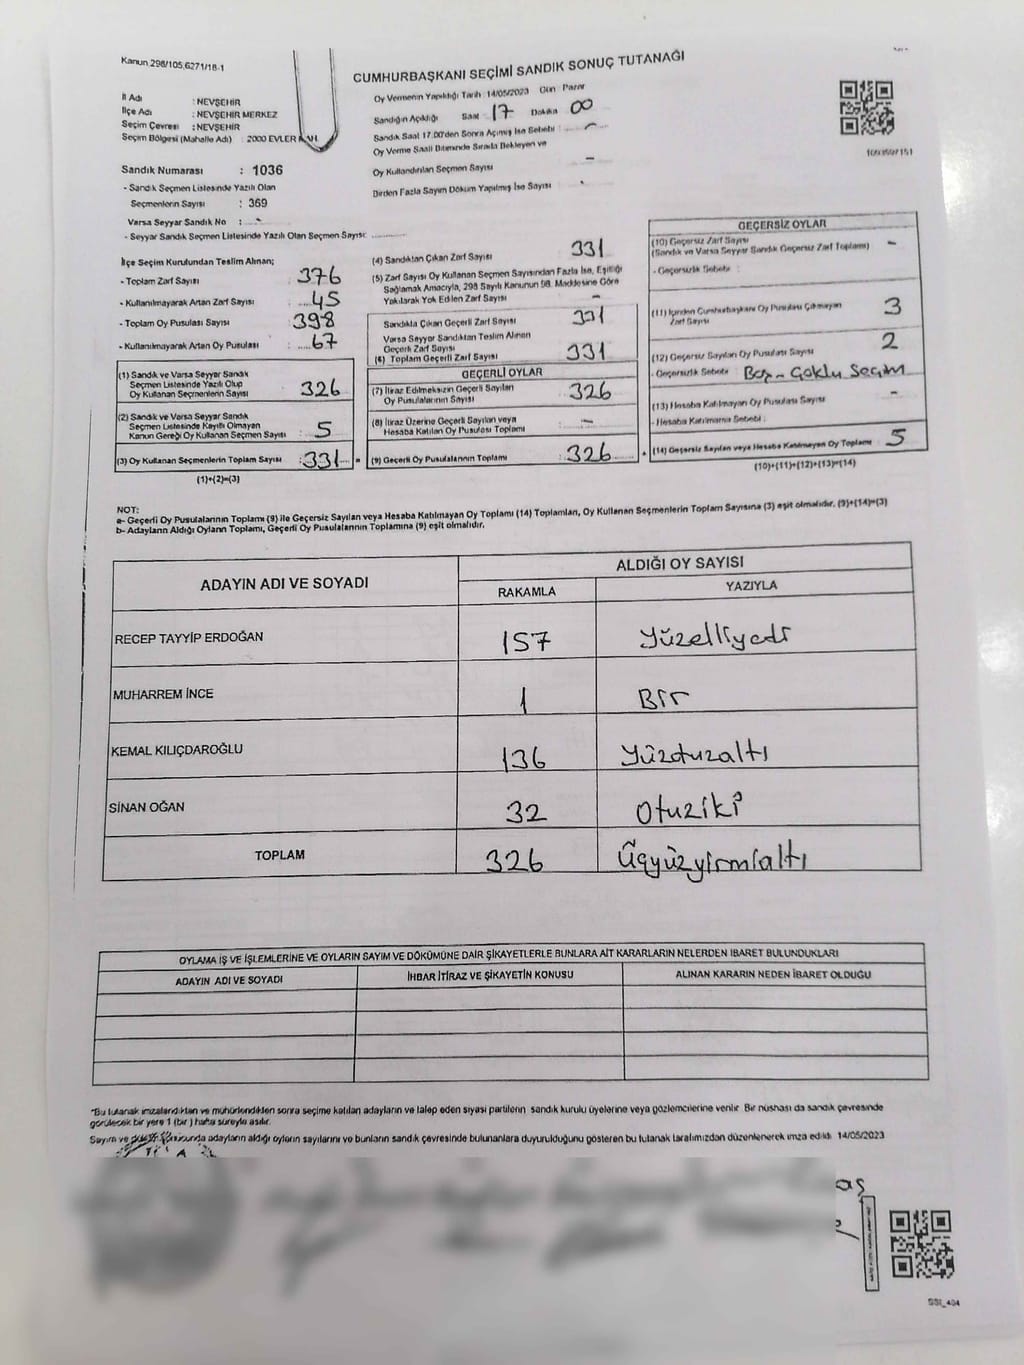 Kanun 298/105,6271/18-1
CUMHURBAŞKANI SEÇİMİ SANDIK SONUÇ TUTANAĞI
İl Adı : NEVŞEHİR
İlçe Adı : NEVŞEHİR MERKEZ
Seçim Çevresi : NEVŞEHİR
Seçim Bölgesi (Mahalle Adı) : 2000 EVLER
Oy Vermenin Yapıldığı Tarih 14/05/2023 Gün Pazar
Sandığın Açıldığı Saat 17 Dakika 00
Sandık Saat 17.00'den Sonra Açımış İse Sebebi : –
Oy Verme Saati Bitiminde Sırada Bekleyen ve
Oy Kullandırılan Seçmen Sayısı –
Birden Fazla Sayım Döküm Yapılmış İse Sayısı
Sandık Numarası : 1036
- Sandık Seçmen Listesinde Yazılı Olan
Seçmenlerin Sayısı : 369
Varsa Seyyar Sandık No : -
- Seyyar Sandık Seçmen Listesinde Yazılı Olan Seçmen Sayısı:
İlçe Seçim Kurulundan Teslim Alınan;
- Toplam Zarf Sayısı : 376
- Kullanılmayarak Artan Zarf Sayısı : 45
- Toplam Oy Pusulası Sayısı : 398
- Kullanılmayarak Artan Oy Pusulası : 67
(1) Sandık ve Varsa Seyyar Sandık
Seçmen Listesinde Yazılı Olup
Oy Kullanan Seçmenlerin Sayısı : 326
(2) Sandık ve Varsa Seyyar Sandık
Seçmen Listesinde Kayıtlı Olmayan
Kanun Gereği Oy Kullanan Seçmen Sayısı : 5
(3) Oy Kullanan Seçmenlerin Toplam Sayısı : 331 =
(1)+(2)=(3)
(4) Sandıktan Çıkan Zarf Sayısı 331
(5) Zarf Sayısı Oy Kullanan Seçmen Sayısından Fazla İse, Eşitliği
Sağlamak Amacıyla, 298 Sayılı Kanunun 98. Maddesine Göre
Yakılarak Yok Edilen Zarf Sayısı –
Sandıkta Çıkan Geçerli Zarf Sayısı 331
Varsa Seyyar Sandıktan Teslim Alınan
Geçerli Zarf Sayısı
(6) Toplam Geçerli Zarf Sayısı 331
GEÇERLİ OYLAR
(7) İtiraz Edilmeksizin Geçerli Sayılan
Oy Pusulalarının Sayısı : 326
(8) İtiraz Üzerine Geçerli Sayılan veya
Hesaba Katılan Oy Pusulası Toplamı : –
(9) Geçerli Oy Pusulalarının Toplamı : 326 +
GEÇERSİZ OYLAR
(10) Geçersiz Zarf Sayısı
(Sandık ve Varsa Seyyar Sandık Geçersiz Zarf Toplamı) –
- Geçersizlik Sebebi :
(11) İçinden Cumhurbaşkanı Oy Pusulası Çıkmayan
Zarf Sayısı 3
(12) Geçersiz Sayılan Oy Pusulası Sayısı 2
- Geçersizlik Sebebi : Boş - Çoklu Seçim
(13) Hesaba Katılmayan Oy Pusulası Sayısı –
- Hesaba Katılmama Sebebi :
(14) Geçersiz Sayılan veya Hesaba Katılmayan Oy Toplamı : 5
(10)+(11)+(12)+(13)=(14)
NOT:
a- Geçerli Oy Pusulalarının Toplamı (9) ile Geçersiz Sayılan veya Hesaba Katılmayan Oy Toplamı (14) Toplamları, Oy Kullanan Seçmenlerin Toplam Sayısına (3) eşit olmalıdır. (9)+(14)=(3)
b- Adayların Aldığı Oyların Toplamı, Geçerli Oy Pusulalarının Toplamına (9) eşit olmalıdır.
ADAYIN ADI VE SOYADI
ALDIĞI OY SAYISI
RAKAMLA YAZIYLA
RECEP TAYYİP ERDOĞAN 157 Yüzelliyedi
MUHARREM İNCE 1 Bir
KEMAL KILIÇDAROĞLU 136 Yüzotuzaltı
SİNAN OĞAN 32 Otuziki
TOPLAM 326 Üçyüzyirmialtı
OYLAMA İŞ VE İŞLEMLERİNE VE OYLARIN SAYIM VE DÖKÜMÜNE DAİR ŞİKAYETLERLE BUNLARA AİT KARARLARIN NELERDEN İBARET BULUNDUKLARI
ADAYIN ADI VE SOYADI İHBAR İTİRAZ VE ŞİKAYETİN KONUSU ALINAN KARARIN NEDEN İBARET OLDUĞU
*Bu tutanak imzalandıktan ve mühürlendikten sonra seçime katılan adayların ve talep eden siyasi partilerin sandık kurulu üyelerine veya gözlemcilerine verilir. Bir nüshası da sandık çevresinde
görülecek bir yere 1 (bir) hafta süreyle asılır.
Sayım ve sonucunda adayların aldığı oyların sayılarını ve bunların sandık çevresinde bulunanlara duyurulduğunu gösteren bu tutanak tarafımızdan düzenlenerek imza edildi. 14/05/2023
SSI_404